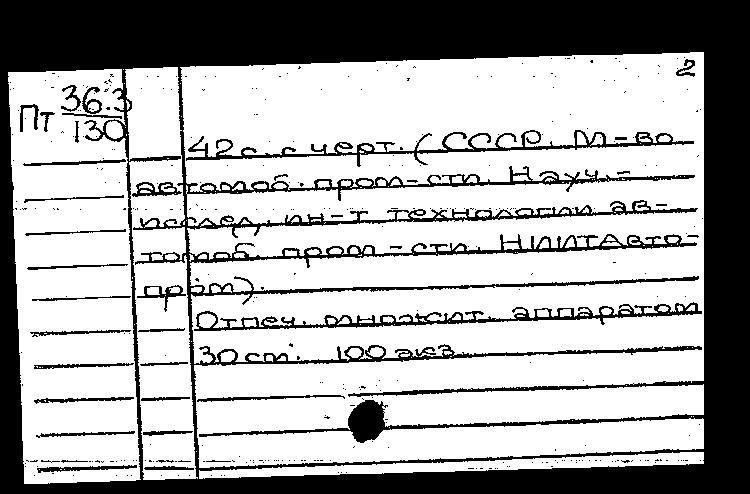 2
Пт 36.3
130
42с. с черт. (СССР. М-во
автомоб. пром-сти. Науч.-
исслед. ин-т технологии ав-
томоб. пром-сти. НИИТАвто-
пром).
Отпеч. множит. аппаратом
30 см. 100 экз.